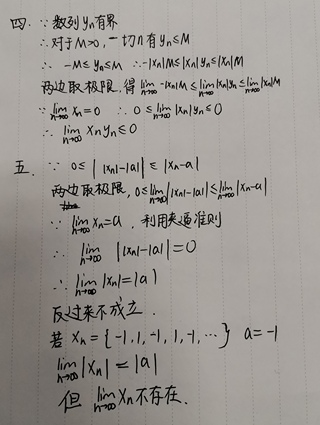 四. ∵ 数列 yn有界
∴ 对于 M>0, 一切n有 yn≤M
∴ -M≤yn≤M ∴-|xn|M≤|xn|yn≤|xn|M
两边取极限, 得 lim n→∞ -|xn|M ≤ lim n→∞ |xn|yn ≤ lim n→∞ |xn|M
∵ lim n→∞ xn=0 ∴ 0≤ lim n→∞ |xn|yn≤0
∴ lim n→∞ xnyn≤0
五. ∵ 0≤ | |xn|-|a| | ≤ |xn-a|
两边取极限, 0≤ lim n→∞ | |xn|-|a| | ≤ lim n→∞ |xn-a|
∵ lim n→∞ xn=a, 利用夹逼准则
∴ lim n→∞ | |xn|-|a| | =0
∴ lim n→∞ |xn|=|a|
反过来不成立.
若 xn={-1,1,-1,1,-1,…} a=-1
lim n→∞ |xn| = |a|
但 lim n→∞ xn不存在.